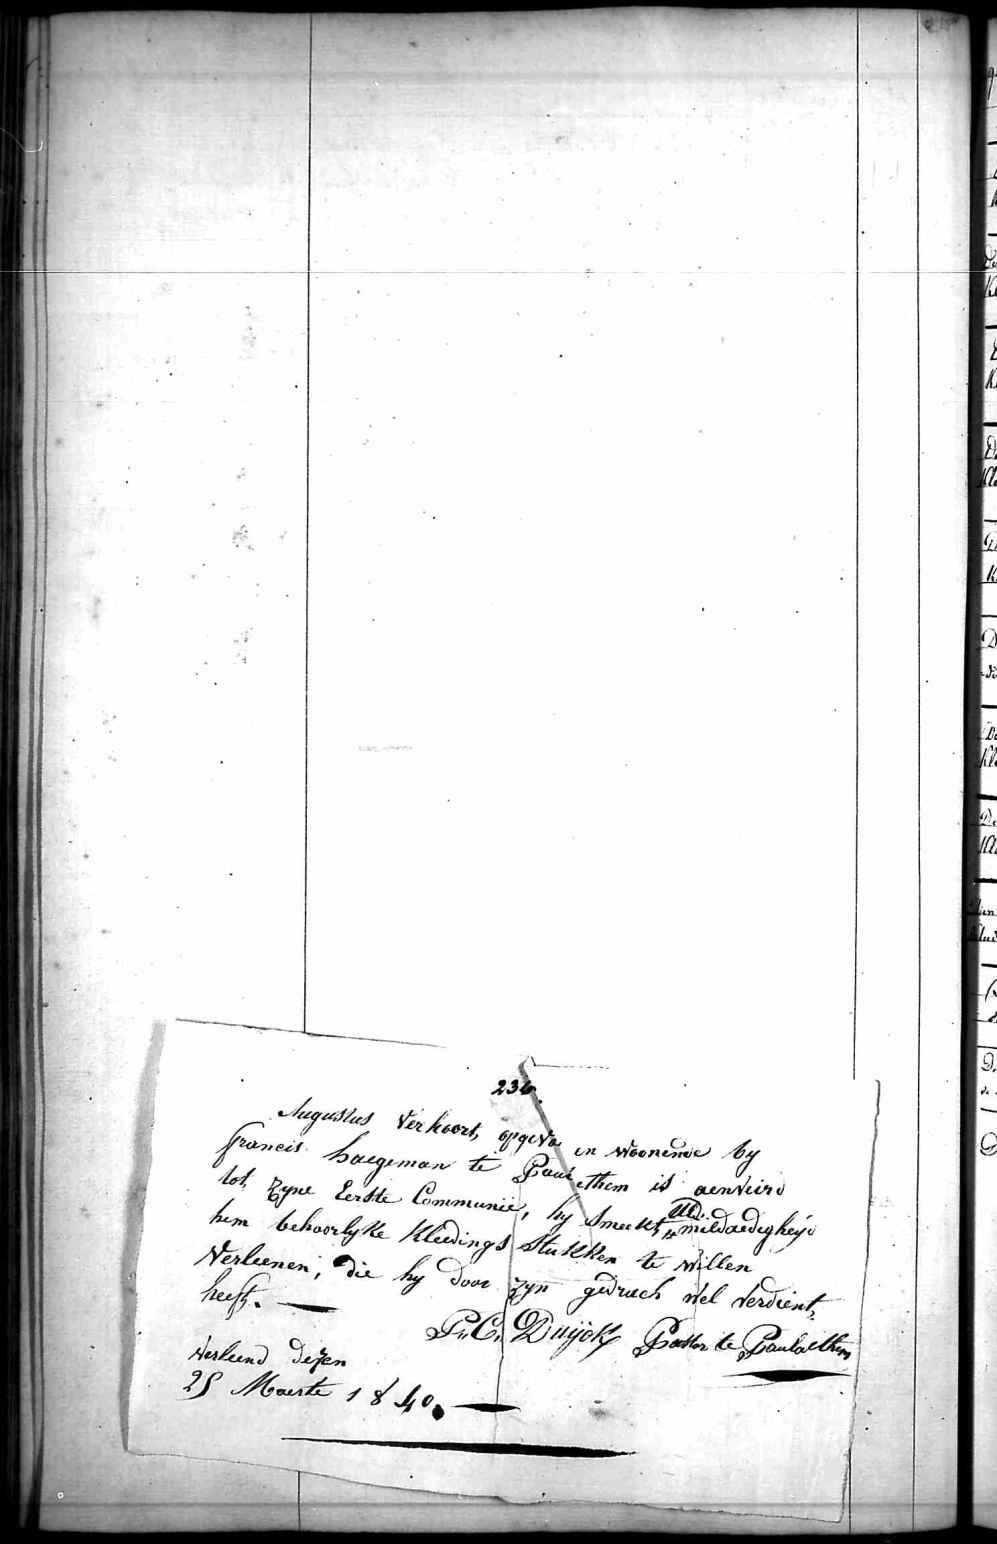 236.
Augustus Verhoort, opgeva en woonende by
francis haegeman te Pauläthem is aenveird
tot zyne Eerste Communië, hy smeekt Ued. mildaedigheyd
hem behoorlyke Kleedings Stukken te willen
Verleenen, die hy door zyn gedrach wel verdient
heeft. —
P. C. Duijck Pastor te Paulaethem
Verleend dezen
25 Maerte 1840.